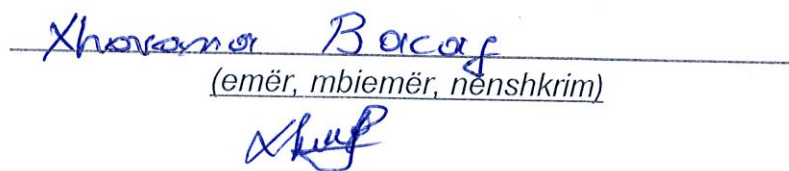 Xhovana Bacaj
(emër, mbiemër, nënshkrim)